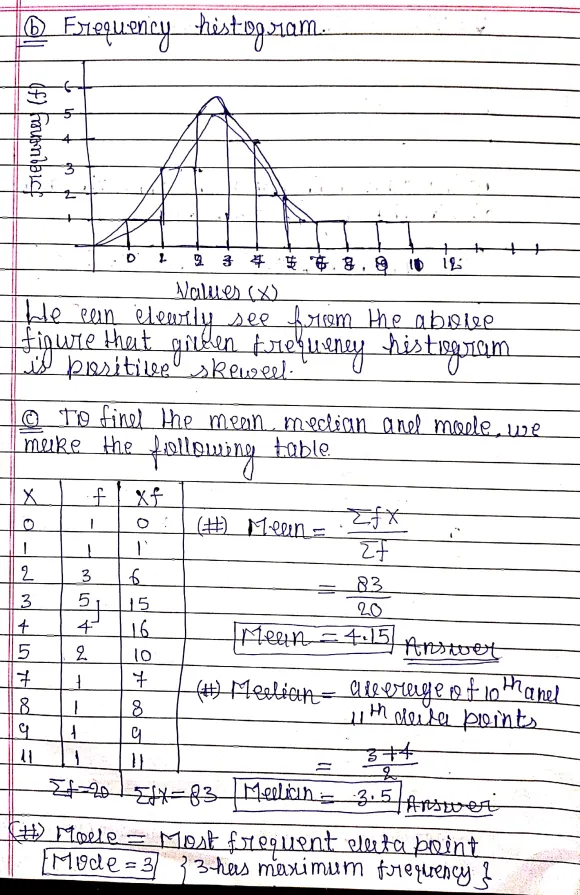 (b) Frequency histogram.
frequency (f)
6
5
4
3
2
1
0 1 2 3 4 5 7 8 9 10 12
Values (X)
We can clearly see from the above
figure that given frequency histogram
is positive skewed.
(c) To find the mean, median and mode, we
make the following table
X f Xf
0 1 0 (#) Mean = Σfx / Σf
1 1 1
2 3 6 = 83 / 20
3 5 15
4 4 16 Mean = 4.15 Answer
5 2 10
7 1 7 (#) Median = average of 10th and
8 1 8 11th data points
9 1 9
11 1 11 = 3+4 / 2
Σf=20 Σfx=83 Median = 3.5 Answer
(#) Mode = Most frequent data point
Mode = 3 {3 has maximum frequency}